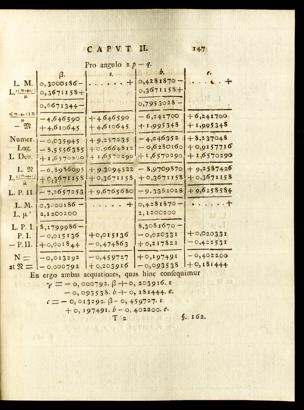 CAPVT II. 147
Pro angulo 2 p − q.
β. ε. b. e.
L. M. 0,3000186− ......+ 0,4281870− ......+
0,3671158+ 0,3671158+
0,0671344− 0,7953028−
−4,646590 +4,646590 −6,241700 +6,241700
− 𝔐 +4,610645 +4,610645 +1,995348 +1,995348
Numer. −0,035945 +9,257235 −4,246352 +8,237048
Log. −8,5556365 +0,9664812 −0,6280160 +0,9157716
L. Den. +1,6570290 +1,6570290 +1,6570290 +1,6570290
L. 𝔑 −6,8986095 +9,3094522 −8,9709870 +9,2587426
+0,3671158 +0,3671158 +0,3671158 +0,3671158
L. P. II −7,1657253 +9,6765680 −9,3381028 +9,6258584
L. M. 0,3000186− ......+ 0,4281870− ......+
L. μ' 2,1200200 2,1200200
L. P. I. 8,1799986− 8,3081670−
P. I. −0,015136 +0,015136 −0,020331 +0,020331
−P. II. +0,001844 −0,474863 +0,217822 −0,422531
N = −0,013292 −0,459727 +0,197491 −0,402200
𝔑 = −0,000792 +0,203916 −0,093538 +0,181444
En ergo ambas aequationes, quas hinc consequimur
γ = − 0,000792. β + 0, 203916. ε
− 0, 093538. b + 0, 181444. e.
c = − 0, 013292. β − 0, 459727. ε
+ 0, 197491. b − 0, 402200. e.
T 2 §. 162.